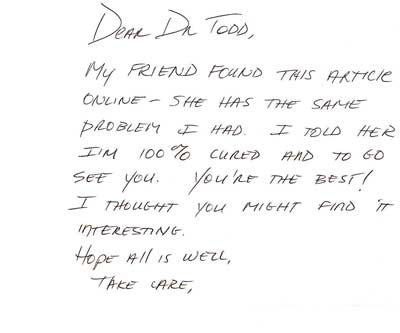 Dear Dr Todd,
My friend found this article
online - she has the same
problem I had. I told her
I'm 100% cured and to go
see you. You're the best!
I thought you might find it
interesting.
Hope all is well,
Take care,